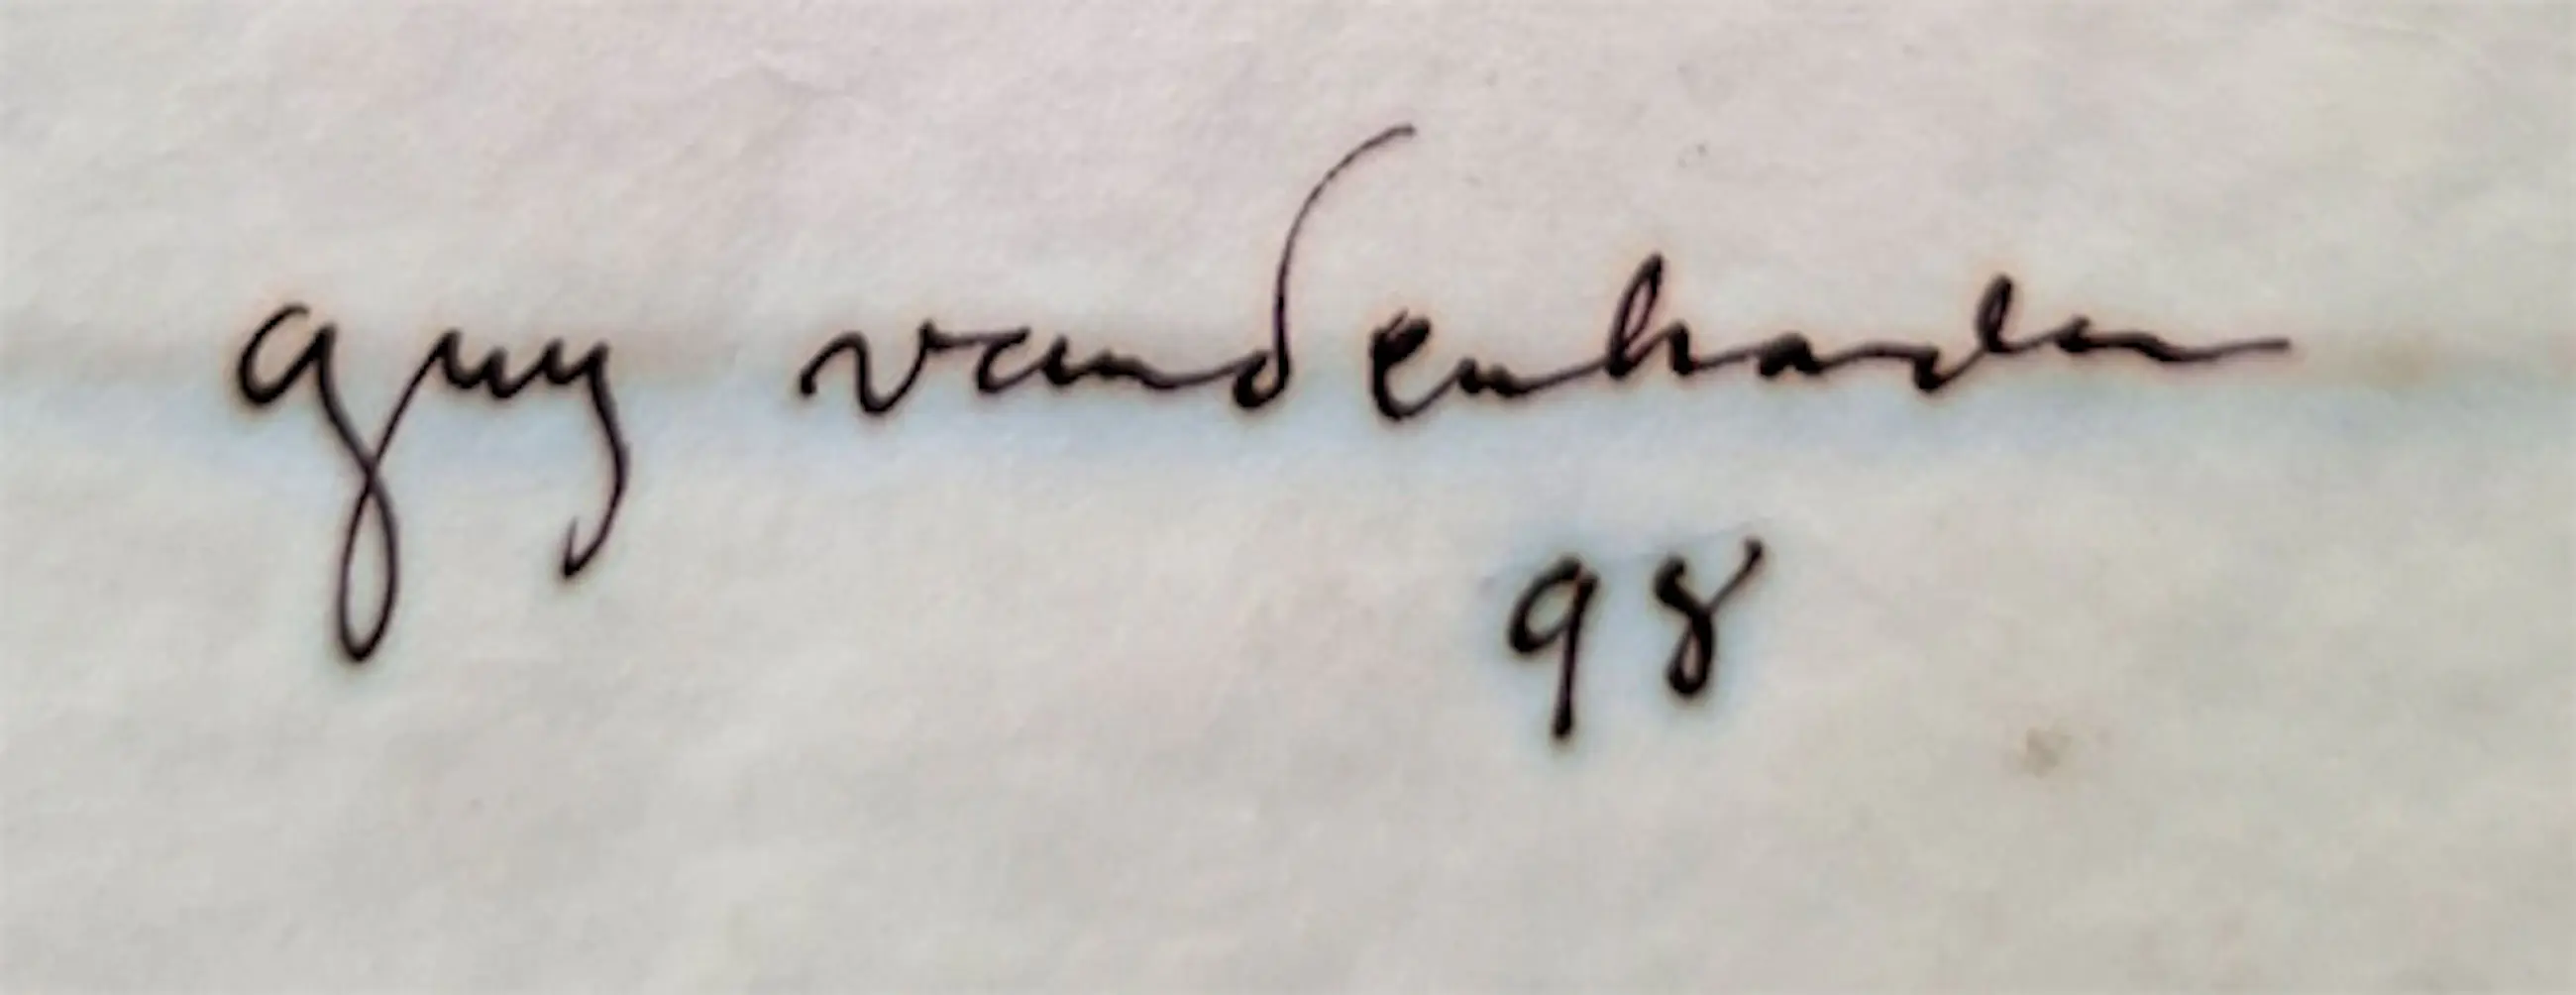 guy vandenbranden
98